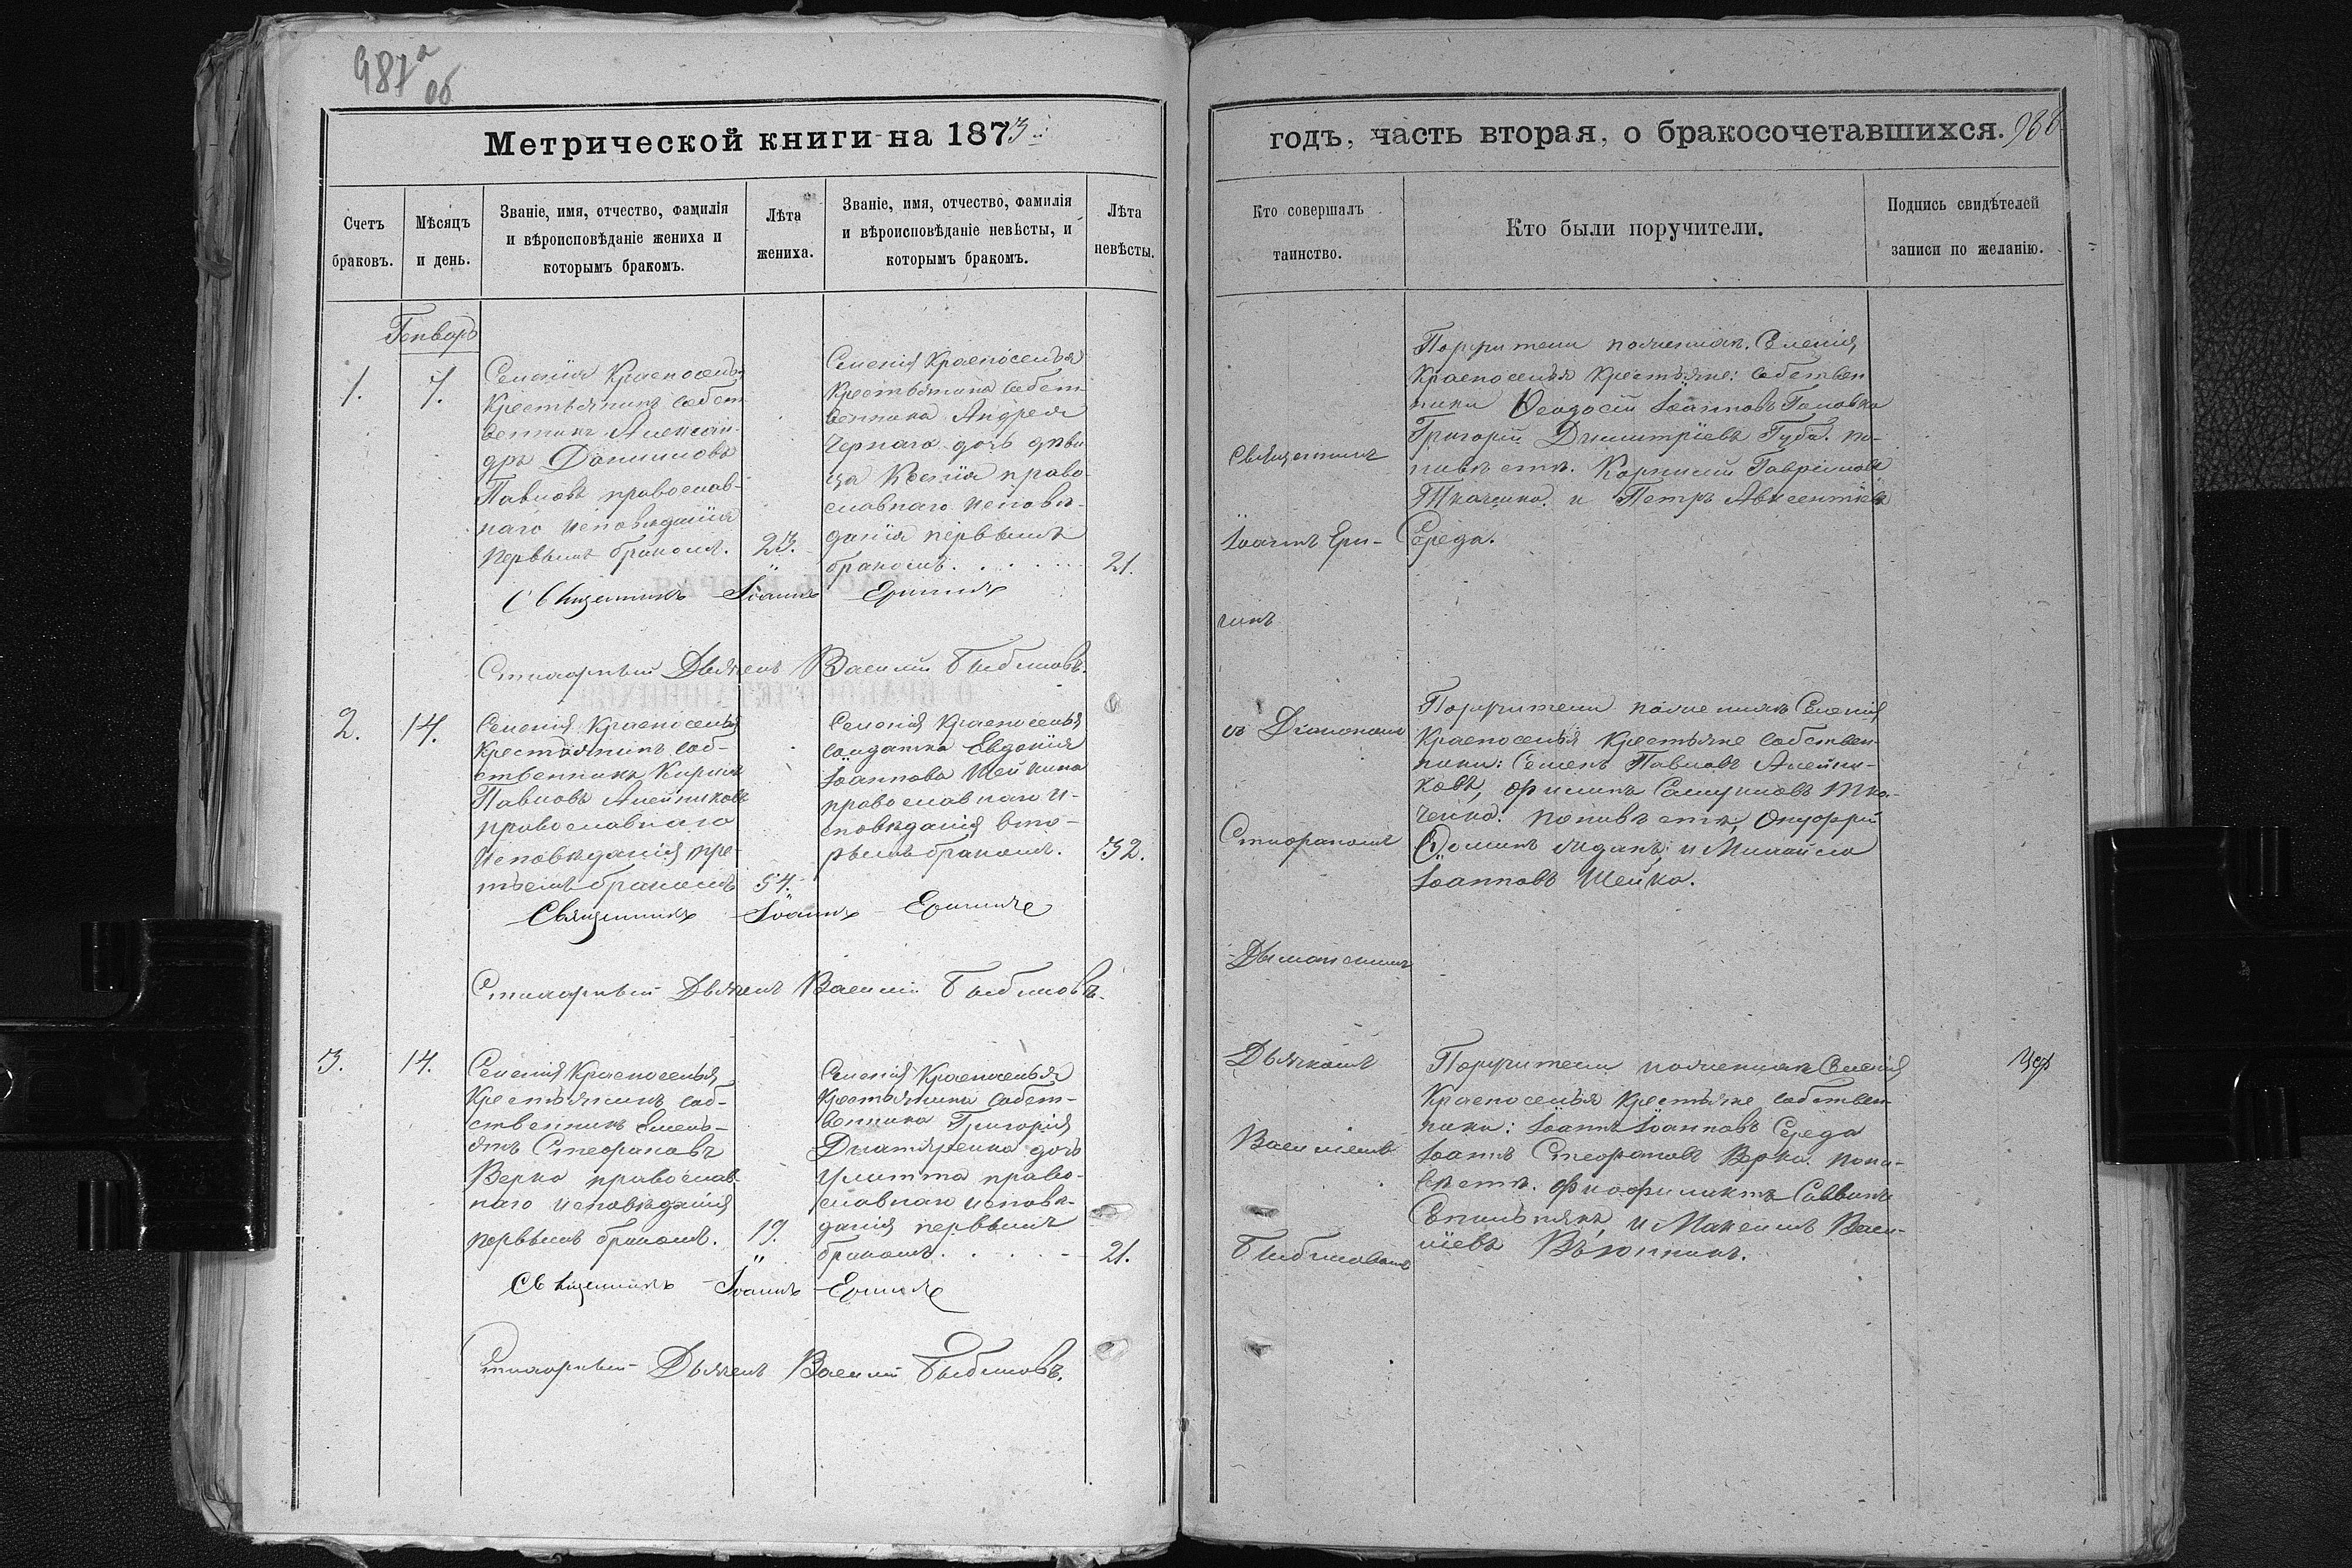 987а
об
Метрической книги на 1873
Счетъ
браковъ.
Мѣсяцъ
и день.
Званіе, имя, отчество, фамилія
и вѣроисповѣданіе жениха и
которымъ бракомъ.
Лѣта
жениха.
Званіе, имя, отчество, фамилія
и вѣроисповѣданіе невѣсты, и
которымъ бракомъ.
Лѣта
невѣсты.
Генварь
1.
7.
Селенія Краснoселья
Крестьянинъ собст
венникъ Алексан-
дръ Даниловъ
Павловъ православ-
наго исповѣданія
первымъ бракомъ.
23.
Селенія Красноселья
Крестьянина собст-
венника Андрея
Чернаго дочь дѣви
ца Ксенія право
славнаго исповѣ-
данія первымъ
бракомъ.
21.
Священникъ Іоаннъ
Стихарный Дьячекъ Василій
2.
14.
Селенія Красноселья
Крестьянинъ соб-
ственникъ Кирилъ
Павловъ Алейниковъ
православнаго
исповѣданія тре
тьимъ бракомъ
54.
Селенія Красноселья
солдатка Евдокія
Іоаннова Шейкина
православнаго и-
сповѣданія вто-
рымъ бракомъ.
32.
Священникъ Іоаннъ
Стихарный Дьячекъ Василій
3.
14.
Селенія Красноселья
Крестьянинъ соб-
ственникъ Емель-
янъ Стефановъ
Верко православ-
наго исповѣданія
первымъ бракомъ.
19.
Селенія Красноселья
Крестьянина собст-
венника Григорія
дочь
Улитта право-
славнаго исповѣ-
данія первымъ
бракомъ.
21.
Священникъ Іоаннъ
Стихарный Дьячекъ Василій
годъ, часть вторая, о бракосочетавшихся. 988
Кто совершалъ
таинство.
Кто были поручители.
Подпись свидѣтелей
записи по желанію.
Священникъ
Іоаннъ
съ Діакономъ
Стефаномъ
Дьячкомъ
Василіемъ
Поручители по женихѣ Селенія
Красноселья Крестьяне: собствен
ники Ѳеодосій Іоанновъ Головко
Григорій Димитріевъ Губа. по
невѣстѣ. Корнилій Гавріиловъ
Ткаченко. и Петръ Авксентіевъ
Середа.
Поручители по женихѣ Селенія
Красноселья Крестьяне собствен
ники: Семенъ Павловъ Алейни-
ковъ, Филипъ Самуиловъ Тка-
ченко. по невѣстѣ, Онуфрій
и Михайло
Іоанновъ Шейко.
Поручители по женихѣ Селенія
Красноселья Крестьяне собствен
ники: Іоаннъ Іоанновъ Середа
Іоаннъ Стефановъ Верко. по не-
вѣстѣ. Саввинъ
и Максимъ Васи-
ліевъ